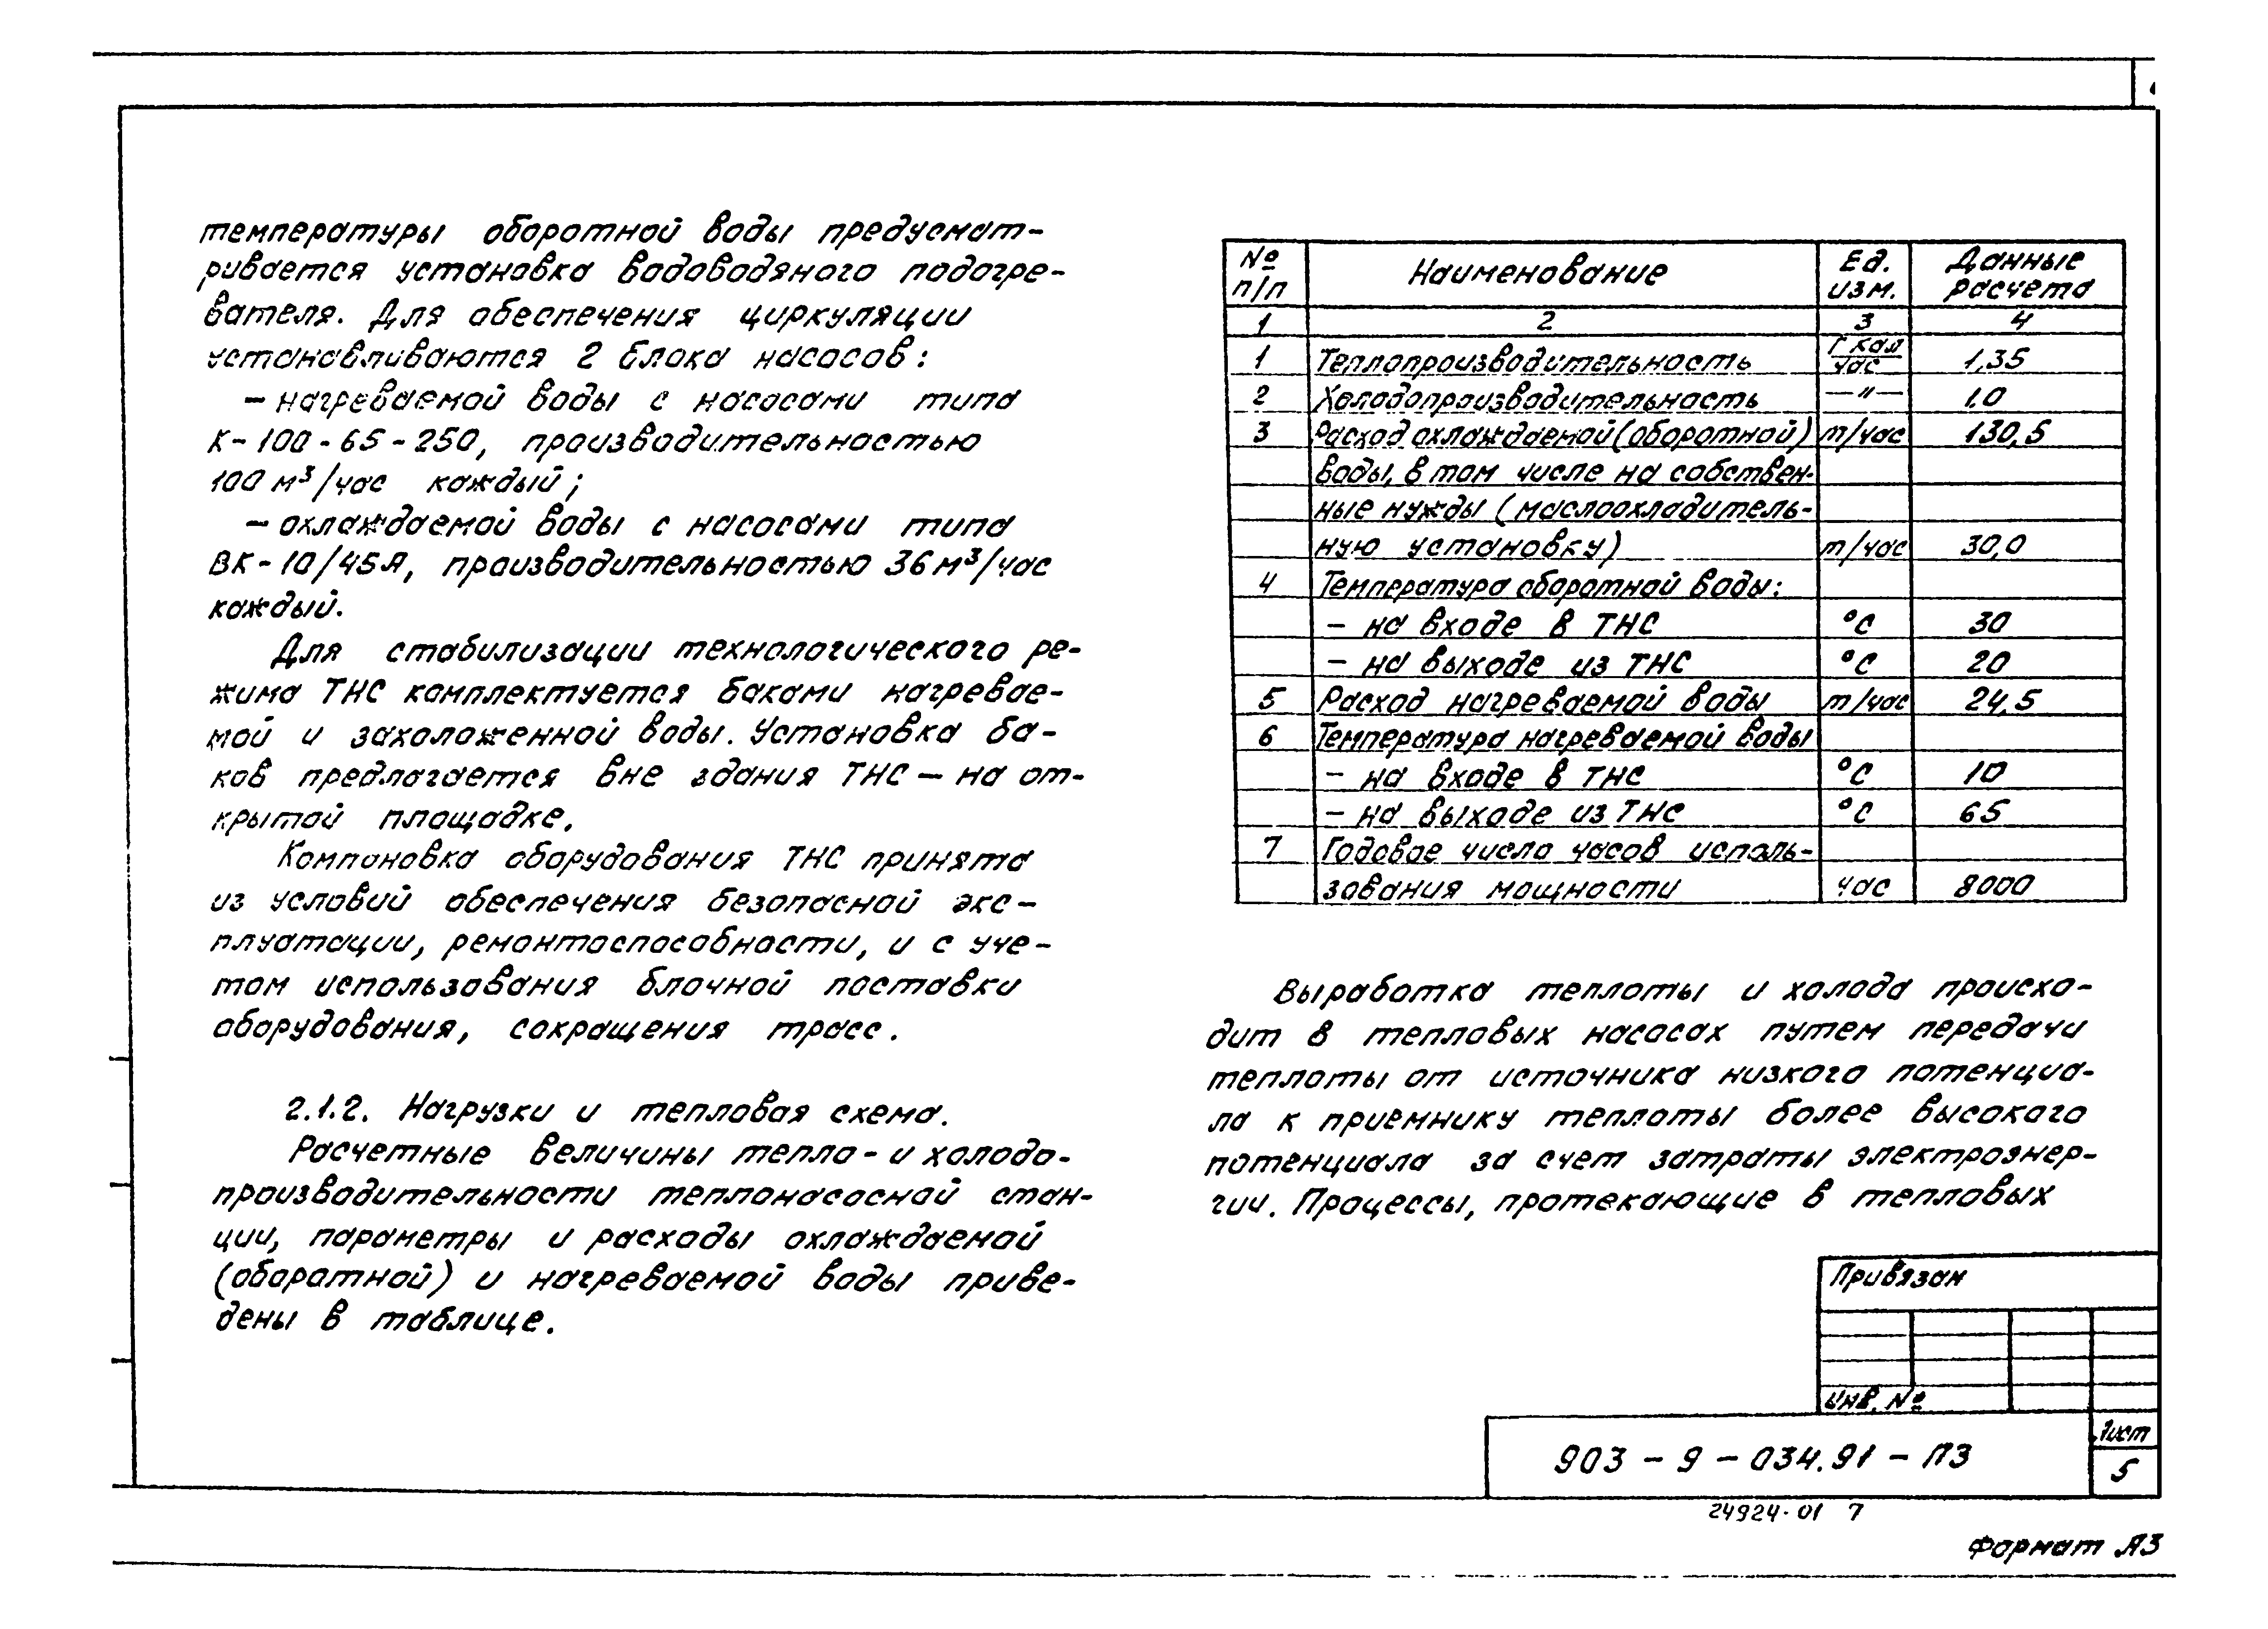 температуры оборотной воды предусмат-
ривается установка водоводяного подогре-
вателя. Для обеспечения циркуляции
устанавливаются 2 блока насосов:
– нагреваемой воды с насосами типа
К-100-65-250, производительностью
100 м³/час каждый;
– охлаждаемой воды с насосами типа
ВК-10/45А, производительностью 36 м³/час
каждый.
Для стабилизации технологического ре-
жима ТНС комплектуется баками нагревае-
мой и захоложенной воды. Установка ба-
ков предлагается вне здания ТНС – на от-
крытой площадке.
Компановка оборудования ТНС принята
из условий обеспечения безопасной экс-
плуатации, ремонтоспособности, и с уче-
том использования блочной поставки
оборудования, сокращения трасс.
2.1.2. Нагрузки и тепловая схема.
Расчетные величины тепло- и холодо-
производительности теплонасосной стан-
ции, параметры и расходы охлаждаемой
(оборотной) и нагреваемой воды приве-
дены в таблице.
№ п/п Наименование Ед. изм. Данные расчета
1 2 3 4
1 Теплопроизводительность Гкал/час 1,35
2 Холодопроизводительность —"— 1.0
3 Расход охлаждаемой (оборотной) т/час 130,5
воды, в том числе на собствен-
ные нужды (маслоохладитель-
ную установку) т/час 30,0
4 Температура оборотной воды:
– на входе в ТНС °С 30
– на выходе из ТНС °С 20
5 Расход нагреваемой воды т/час 24,5
6 Температура нагреваемой воды
– на входе в ТНС °С 10
– на выходе из ТНС °С 65
7 Годовое число часов исполь-
зования мощности час 8000
Выработка теплоты и холода происхо-
дит в тепловых насосах путем передачи
теплоты от источника низкого потенциа-
ла к приемнику теплоты более высокого
потенциала за счет затраты электроэнер-
гии. Процессы, протекающие в тепловых
Привязан
Инв. №
903-9-034.91-ПЗ
Лист
5
24924-01 7
Формат А3